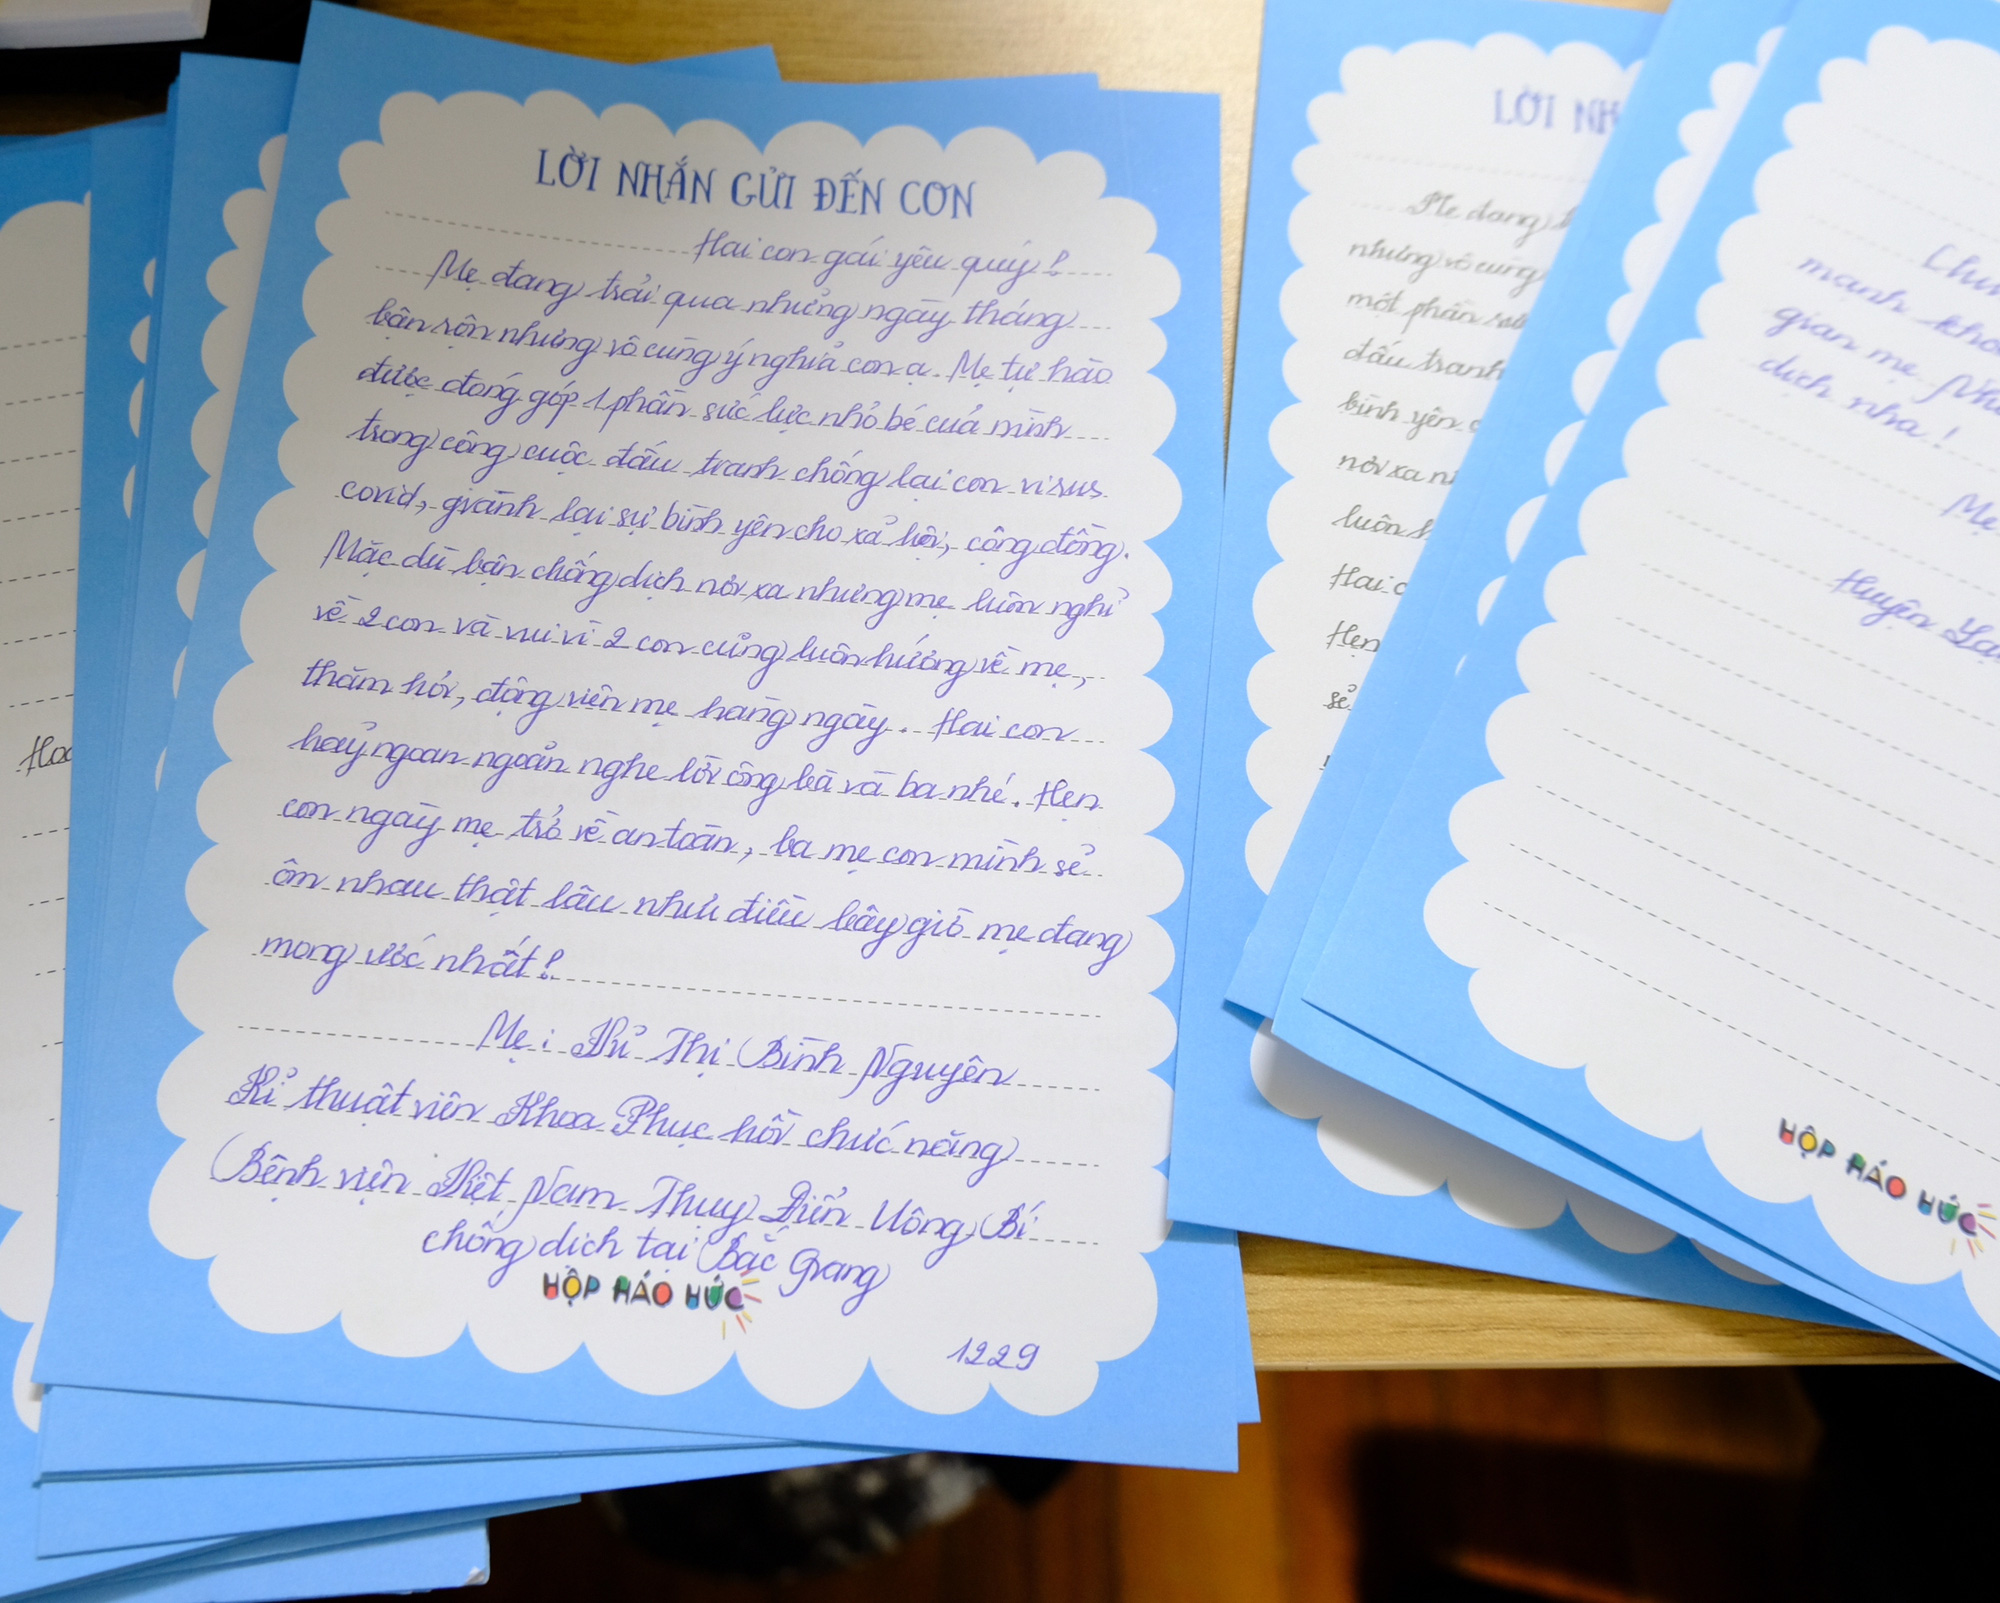 LỜI NHẮN GỬI ĐẾN CON
Hai con gái yêu quý!
Mẹ đang trải qua những ngày tháng
bận rộn nhưng vô cùng ý nghĩa con ạ. Mẹ tự hào
được đóng góp 1 phần sức lực nhỏ bé của mình
trong công cuộc đấu tranh chống lại con virus
covid, giành lại sự bình yên cho xã hội, cộng đồng.
Mặc dù bận chống dịch nơi xa nhưng mẹ luôn nghĩ
về 2 con và vui vì 2 con cũng luôn hướng về mẹ,
thăm hỏi, động viên mẹ hàng ngày. Hai con
hãy ngoan ngoãn nghe lời ông bà và ba nhé. Hẹn
con ngày mẹ trở về an toàn, ba mẹ con mình sẽ
ôm nhau thật lâu như điều bây giờ mẹ đang
mong ước nhất!
Mẹ: Thị Bình Nguyên
Kĩ thuật viên Khoa Phục hồi chức năng
Bệnh viện Việt Nam Thụy Điển Uông Bí
chống dịch tại Bắc Giang
HỘP HÁO HỨC
1229
LỜI
Mẹ đang
nhưng vô cùng
một phần
đấu tranh
bình yên
nơi xa
luôn
Hai
Hẹn
sẽ
mạnh
gian mẹ
dịch nha!
Mẹ
Huyện
HỘP HÁO HỨC